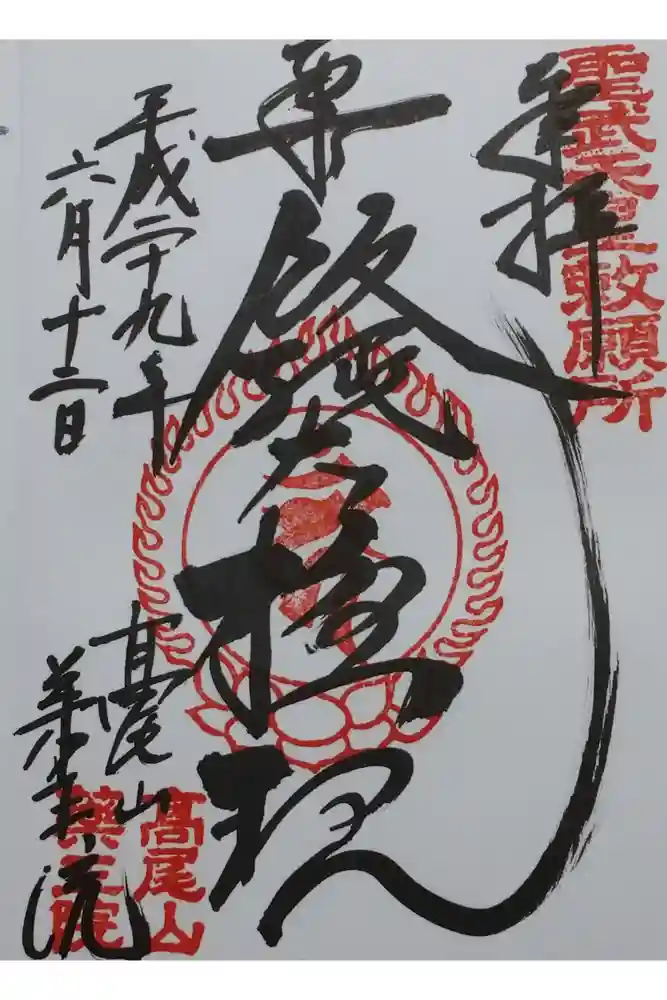 聖武天皇敕願所
奉拝
飯縄大権現
平成二十九年
六月十二日
高尾山
薬王院
高尾山
薬王院